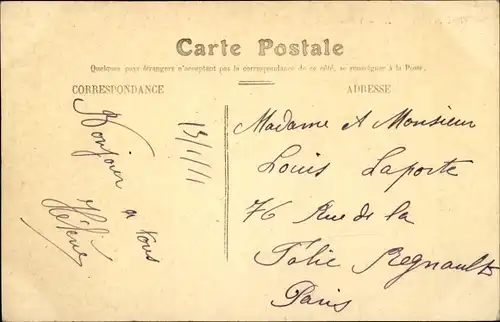 Carte Postale
Quelques pays étrangers n'acceptant pas la correspondance de ce côté, se renseigner à la Poste.
CORRESPONDANCE
ADRESSE
Bonjour
à vous
Hélène
13/1/11
Madame et Monsieur
Louis Laporte
76 Rue de la
Folie Regnault
Paris